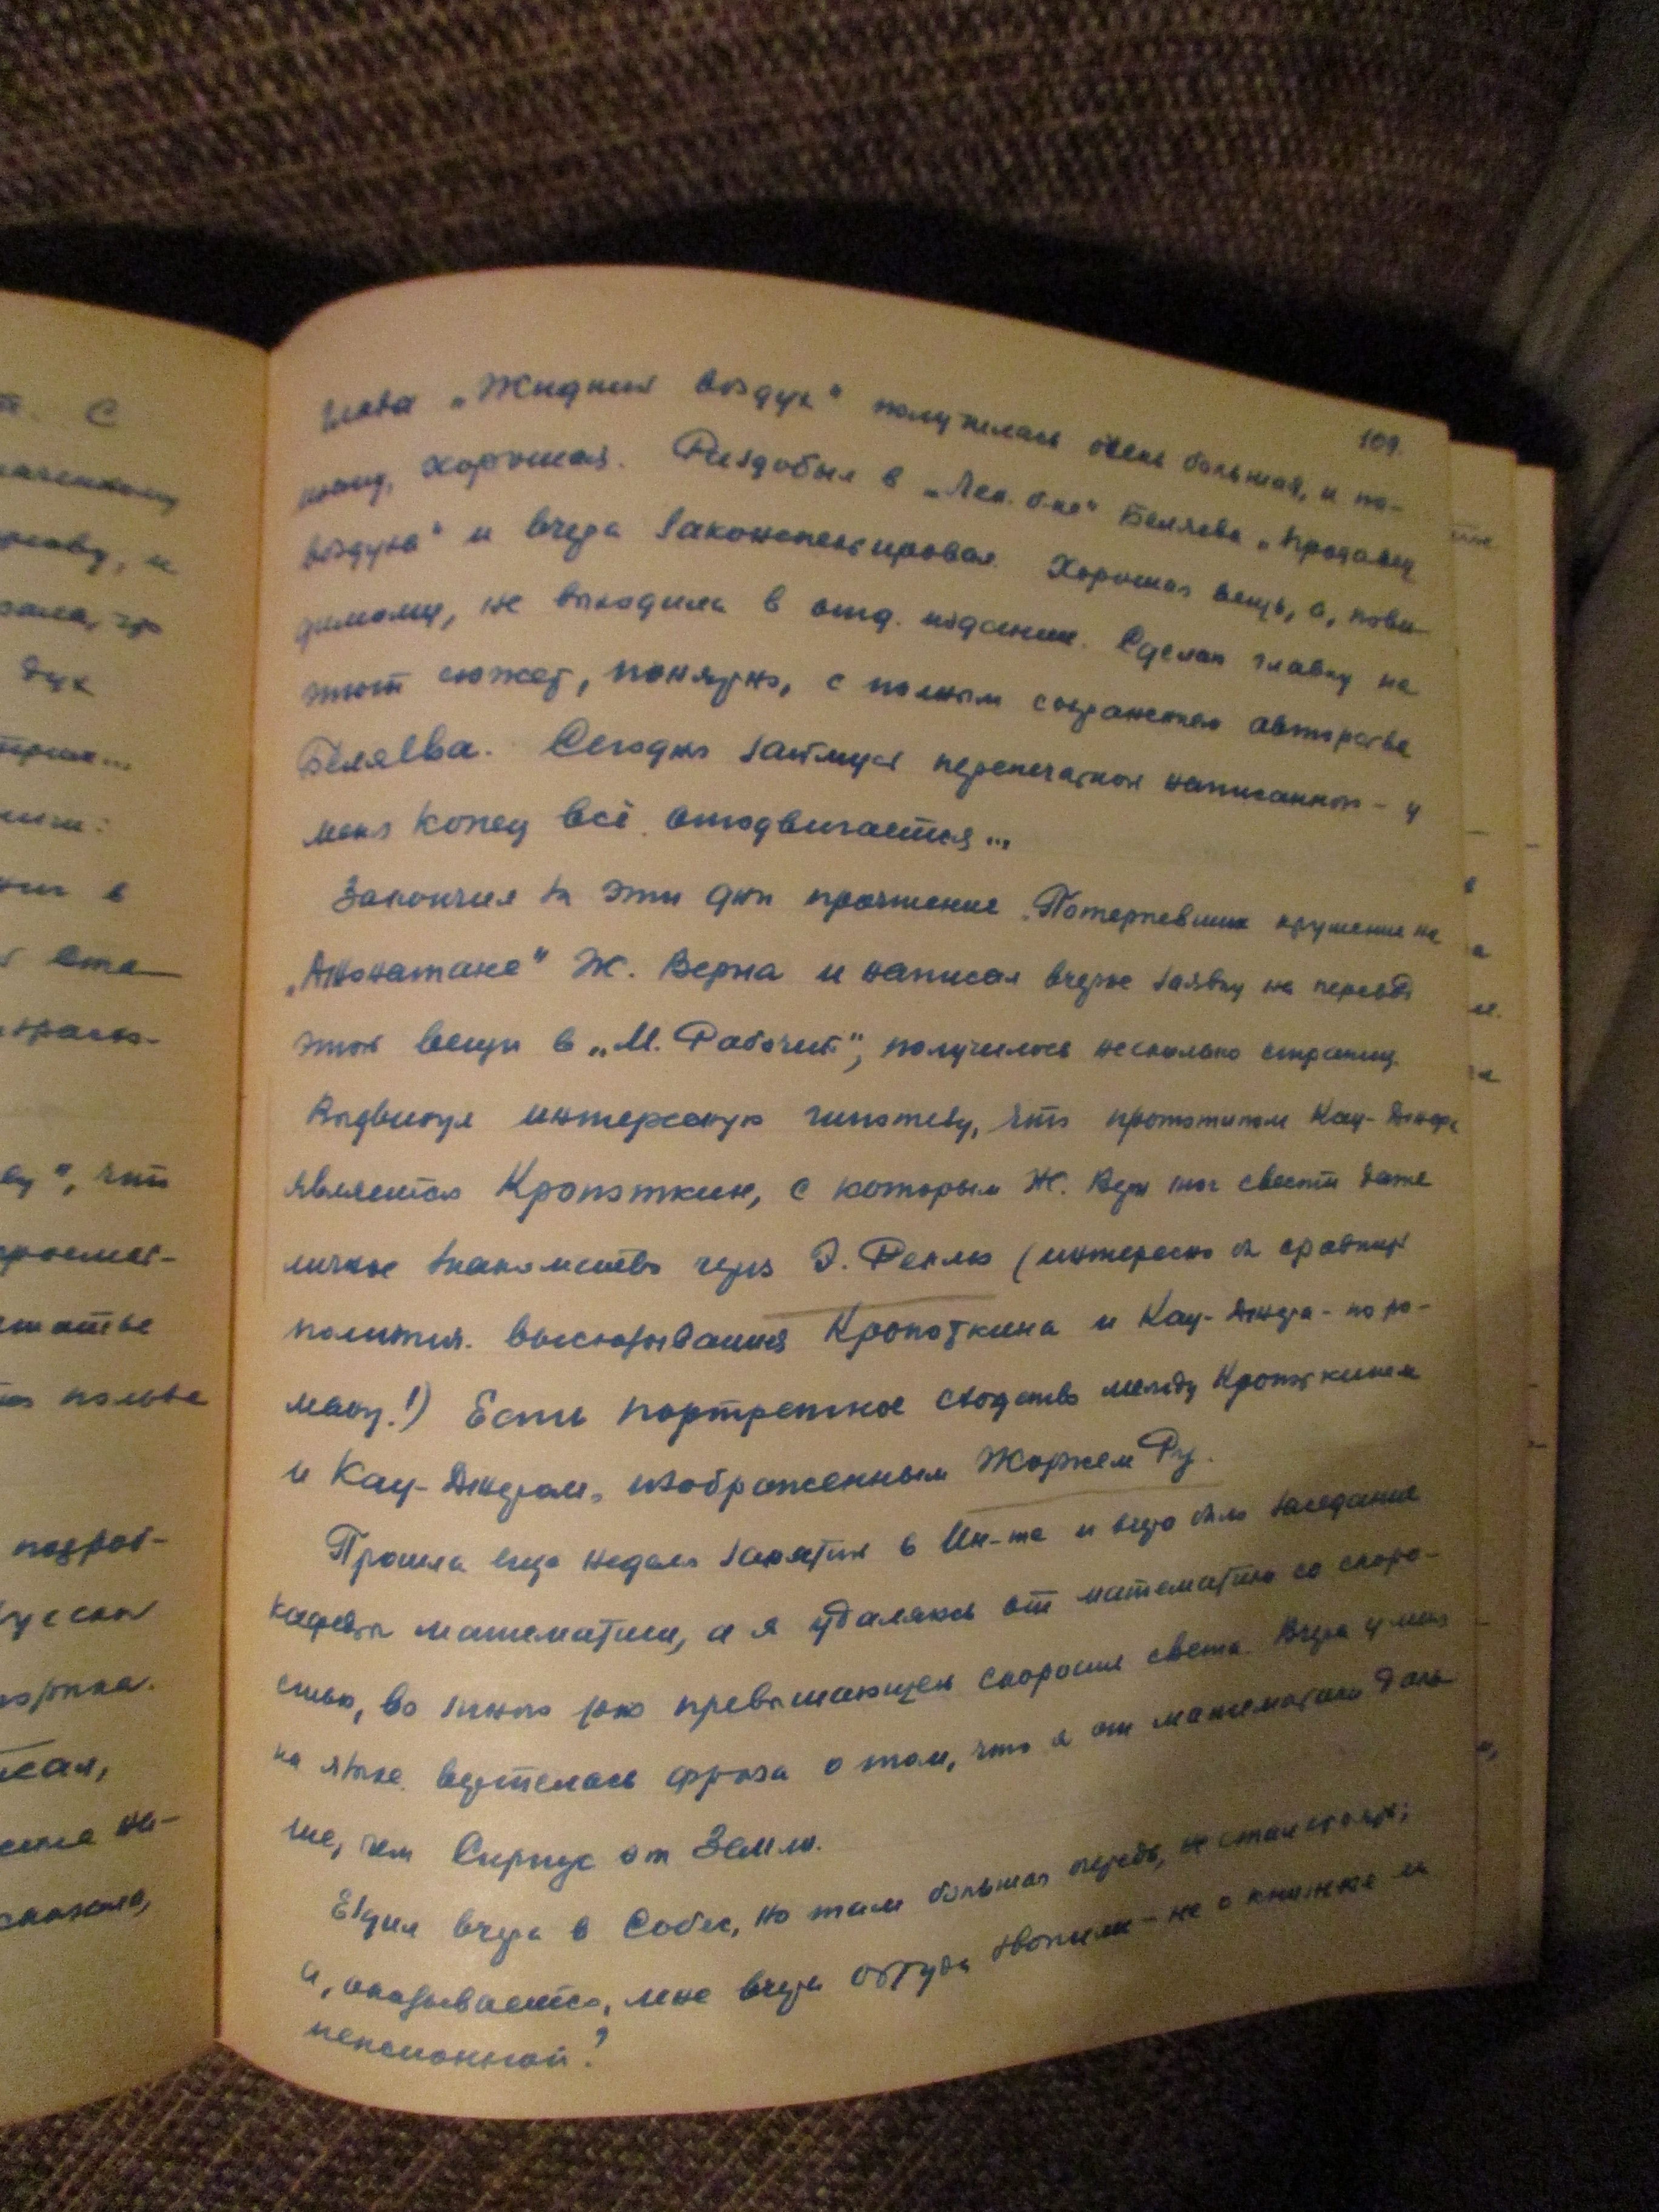 109.
глава „Жидкий воздух" получилась очень большая, и по-
моему, хорошая. Раздобыл в „Лен. б-ке" Беляева „Продавец
воздуха" и вчера законспектировал. Хорошая вещь, а, пови-
димому, не выходила в отд. издании. Сделал главку на
этот сюжет, понятно, с полным сохранением авторства
Беляева. Сегодня займусь перепечаткой написанного – у
меня конец всё отодвигается...
Закончил за эти дни прочтение „Потерпевших крушение на
„Джонатане" Ж. Верна и написал вчерне заявку на перевод
этой вещи в „М. Рабочий", получилось несколько страниц.
Выдвинул интересную гипотезу, что прототипом Кау-Джера
является Кропоткин, с которым Ж. Верн мог свести даже
личное знакомство через Э. Реклю (интересно б сравнить
политич. высказывания Кропоткина и Кау-Джера – по ро-
ману!) Есть портретное сходство между Кропоткиным
и Кау-Джером, изображенным Жоржем Ру.
Прошла еще неделя занятий в Ин-те и вчера было заседание
кафедры математики, а я удаляюсь от математики со скоро-
стью, во много раз превышающей скорость света. Вчера у меня
на языке вертелась фраза о том, что я от математики даль-
ше, чем Сириус от Земли.
Ездил вчера в Собес, но там большая очередь, не стал стоять;
а, оказывается, мне вчера оттуда звонили – не о книжке ли
пенсионной?
С
дух
в
", что
подроб-